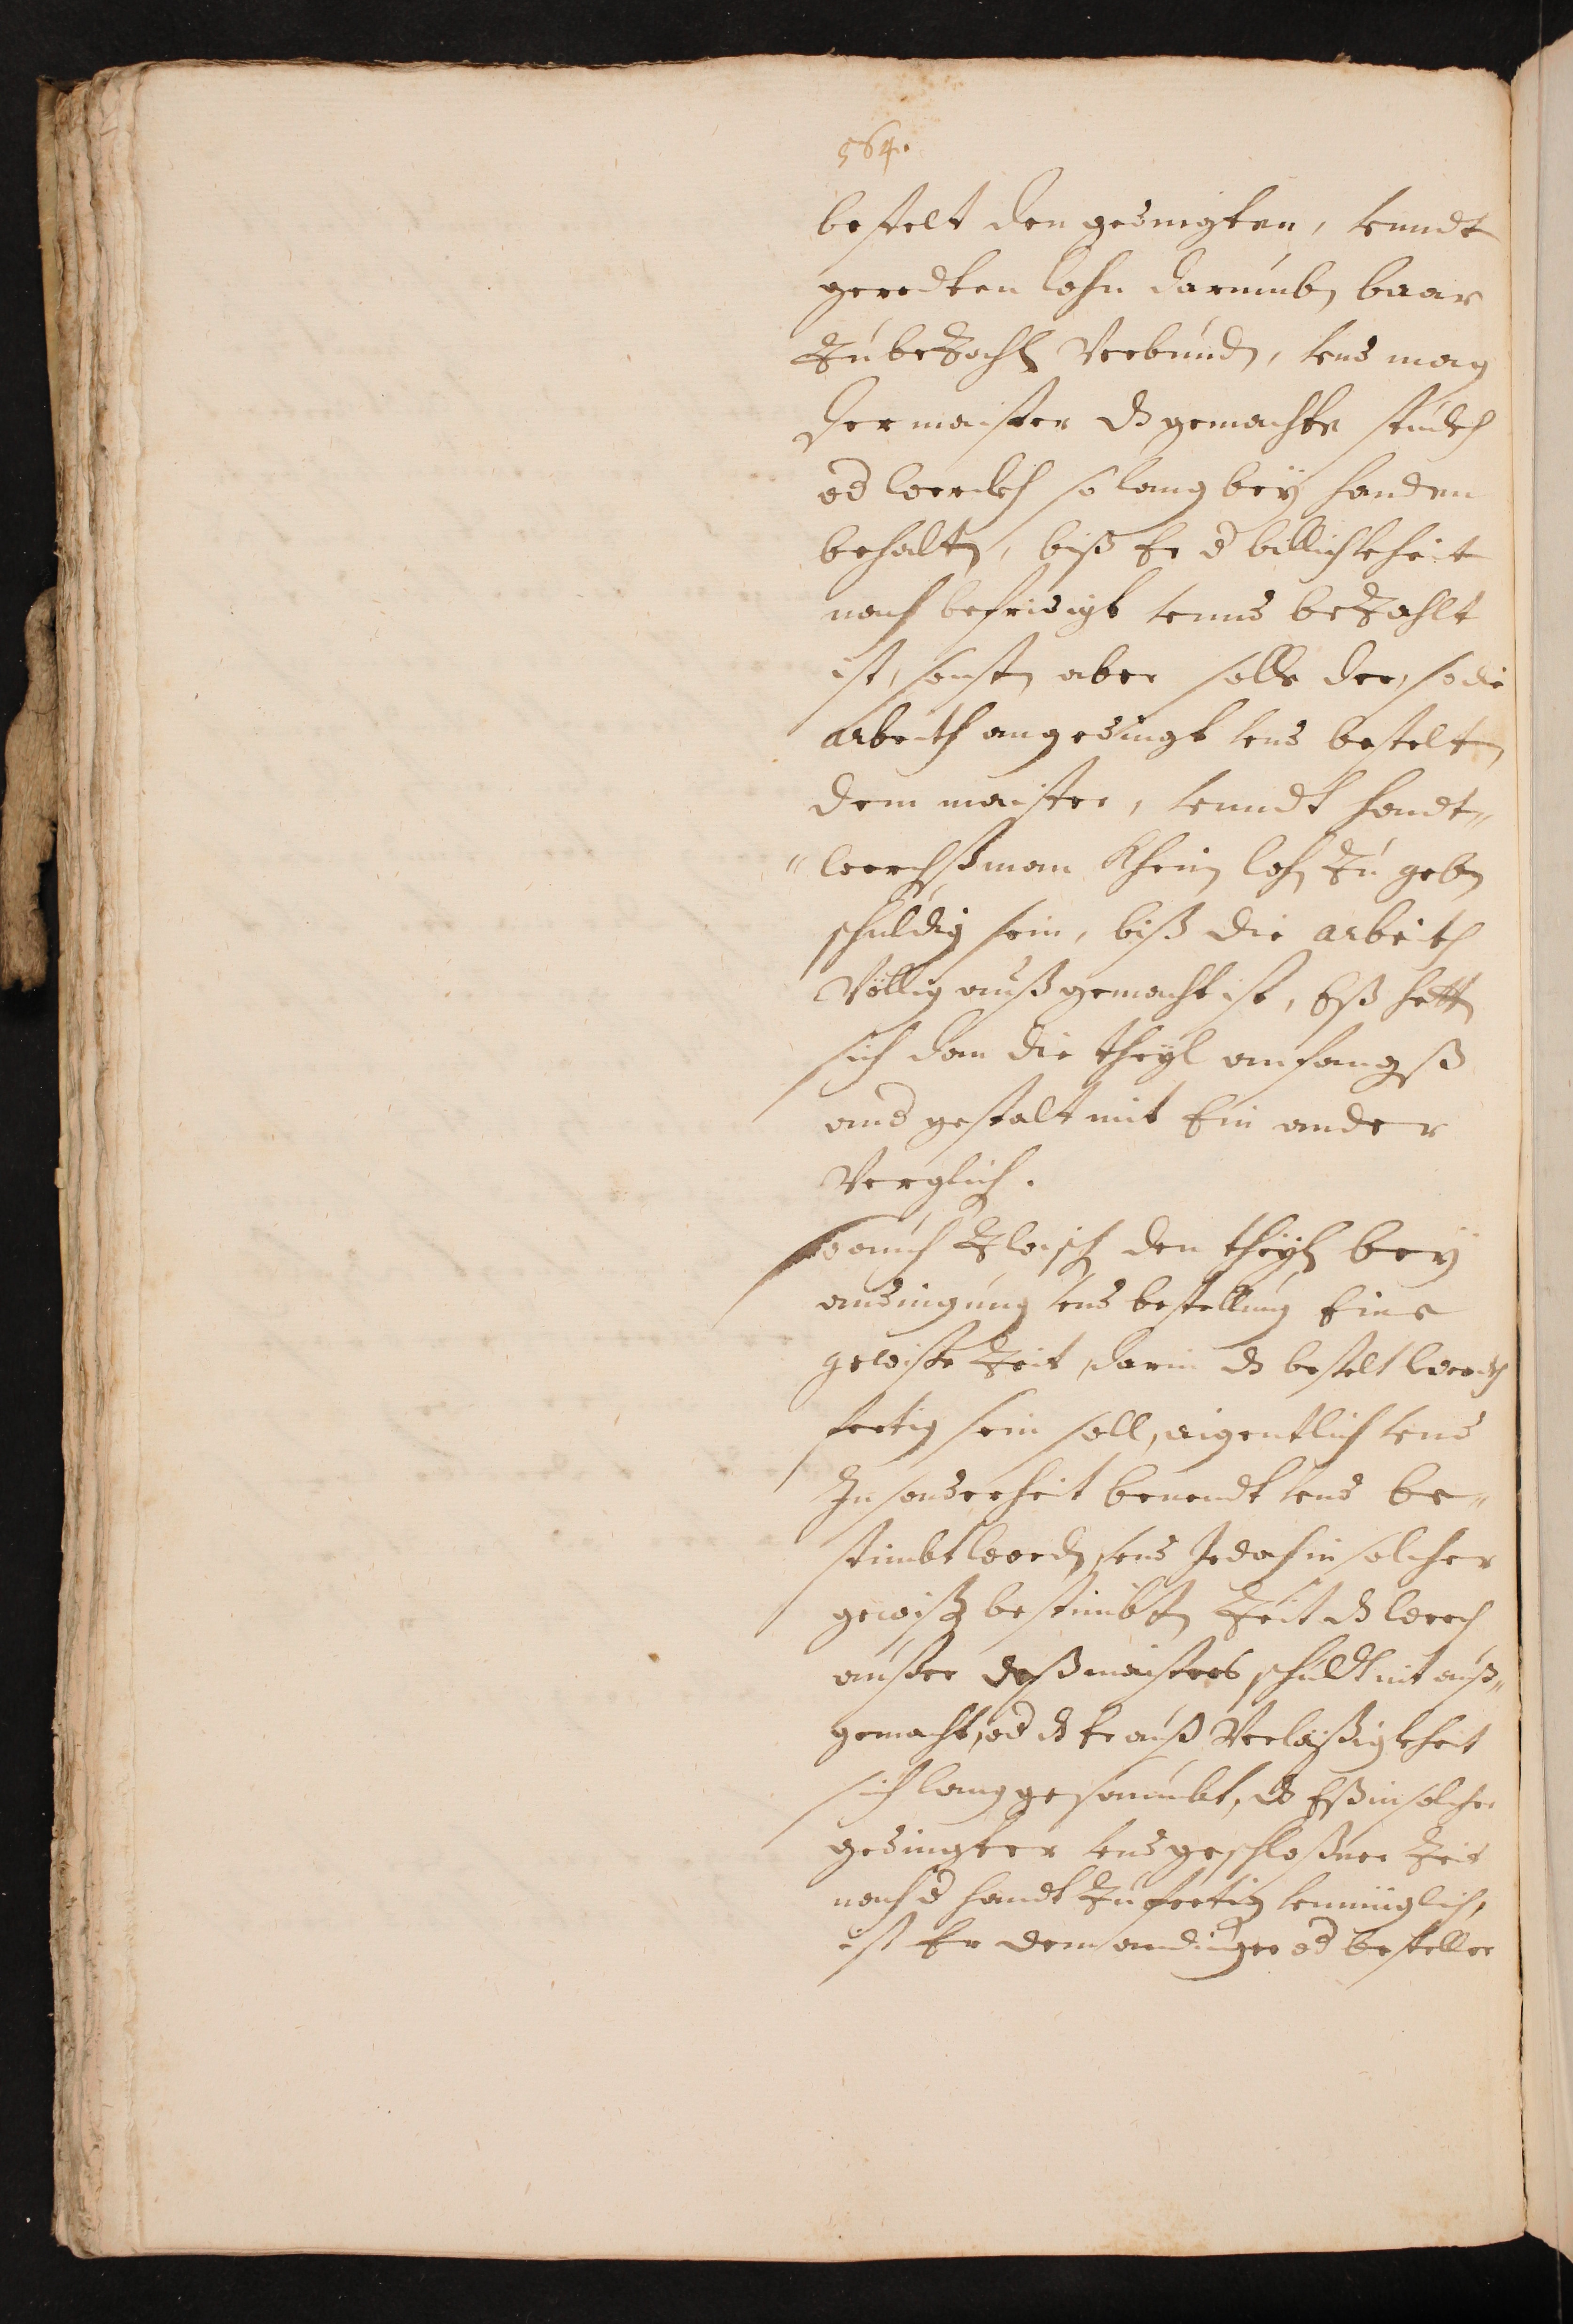 564.
bestelt den gedingten, vnndt
geredten lohn darumben baar
Zubezahlen Verbunden, vnd mag
der maister dz gemachte stückh
od werckh so lang bey handen
behalten, biß Er d billichkheit
nach befridigt vnnd bezahlt
ist, sonsten aber solle der, so die
arbeith angedingt vnd bestelt,
dem maister, vnndt handt„
„werchßman Kheinen lohn Zu geben
schuldig sein, biß die arbeith
Völlig außgemacht ist, Eß hetten
sich dan die theyl anfangß
and gestalt mit Ein ander
Verglichen.
So auch Zwischen den theylen bey
andingung vnd bestellung Eine
gewisse Zeit, darin dz bestelt werckh
fertig sein soll, aigentlich vnd
In sonderheit benendt vnd be„
stimbt worden, vnd Jedoch in solcher
gewissen bestimbten Zeit dz werch
ausser deß maisters schuldt nit auß„
gemacht, od dz Er auß Verlässigkheit
sich lang gesaumbt, dz Eß in solcher
gedingter vnd geschloßner Zeit
nach d handt Zufertigen vnmüglich,
ist Er dem andinger od besteller